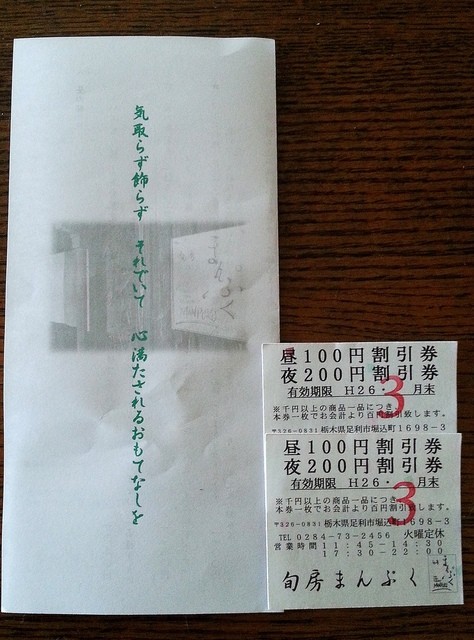 気取らず飾らず それでいて 心満たされるおもてなしを
まんぷく
昼100円割引券
夜200円割引券
有効期限 H26・3月末
※千円以上の商品一品につき
本券一枚でお会計より百円割引致します。
〒326-0831 栃木県足利市堀込町1698-3
昼100円割引券
夜200円割引券
有効期限 H26・3月末
※千円以上の商品一品につき
本券一枚でお会計より百円割引致します。
〒326-0831 栃木県足利市堀込町1698-3
TEL 0284-73-2456 火曜定休
営業時間 11:45-14:30
17:30-22:00
旬房まんぷく
まんぷく